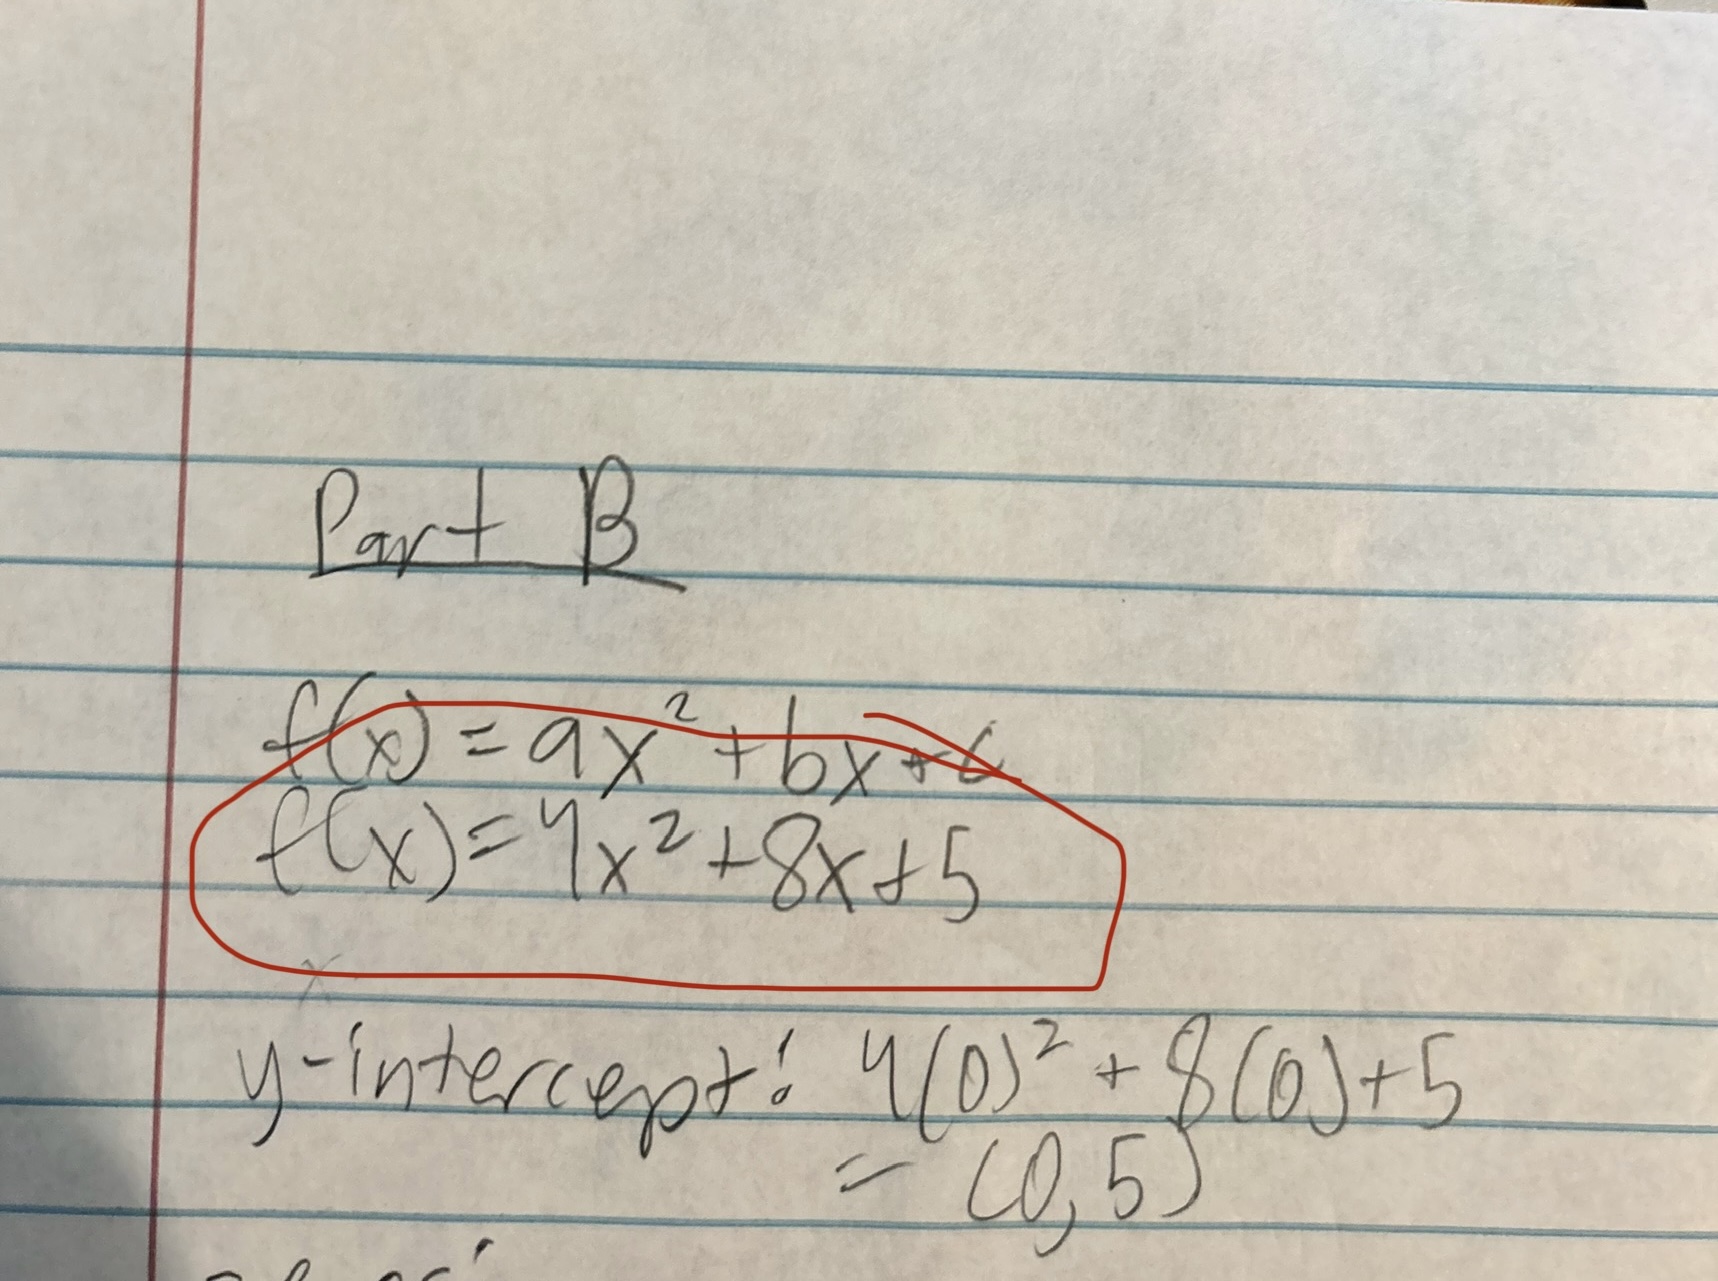 Part B
f(x) = ax² + bx + c
f(x) = 4x² + 8x + 5
x
y-intercept: 4(0)² + 8(0) + 5
= (0, 5)